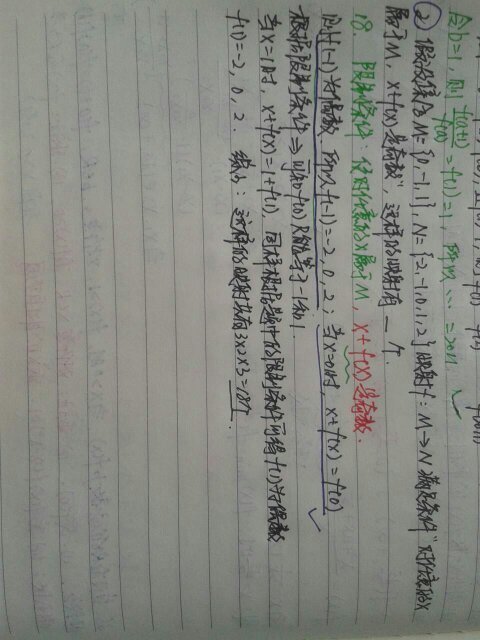 令b=1,则 f(a+1)/f(a) = f(1)=1, 所以 … = 2011
② 假设集合M={0,-1,1},N={-2,-1,0,1,2}映射f:M→N满足条件“对任意的x
属于M,x+f(x)是奇数”,这样的映射有__个.
18 限制条件:使对任意的x属于M,x+f(x)是奇数.
则f(-1)为偶数,所以f(-1)=-2,0,2;当x=0时,x+f(x)=f(0)
根据限制条件⇒可知f(0)只能等于-1和1.
当x=1时,x+f(x)=1+f(1),同样根据题中的限制条件可得f(1)为偶数
f(1)=-2,0,2. 综上:这样的映射共有3×2×3=18个.